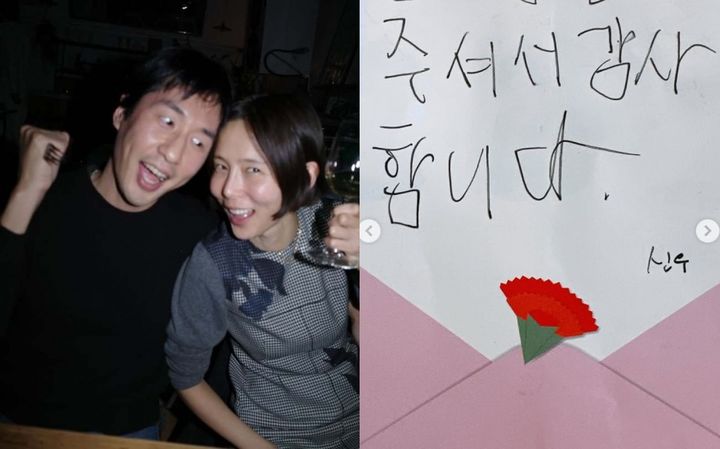 주셔서 감사
합니다.
신우